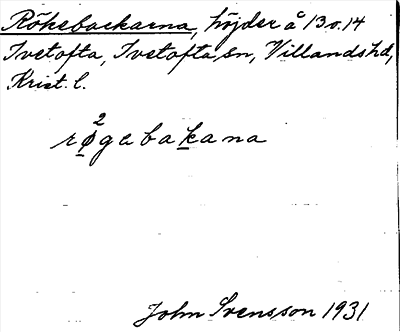 Rökebackarna, höjder å 13 o. 14
Ivetofta, Ivetofta sn, Villands hd,
Krist. l.
2
røgabakana
John Svensson 1931